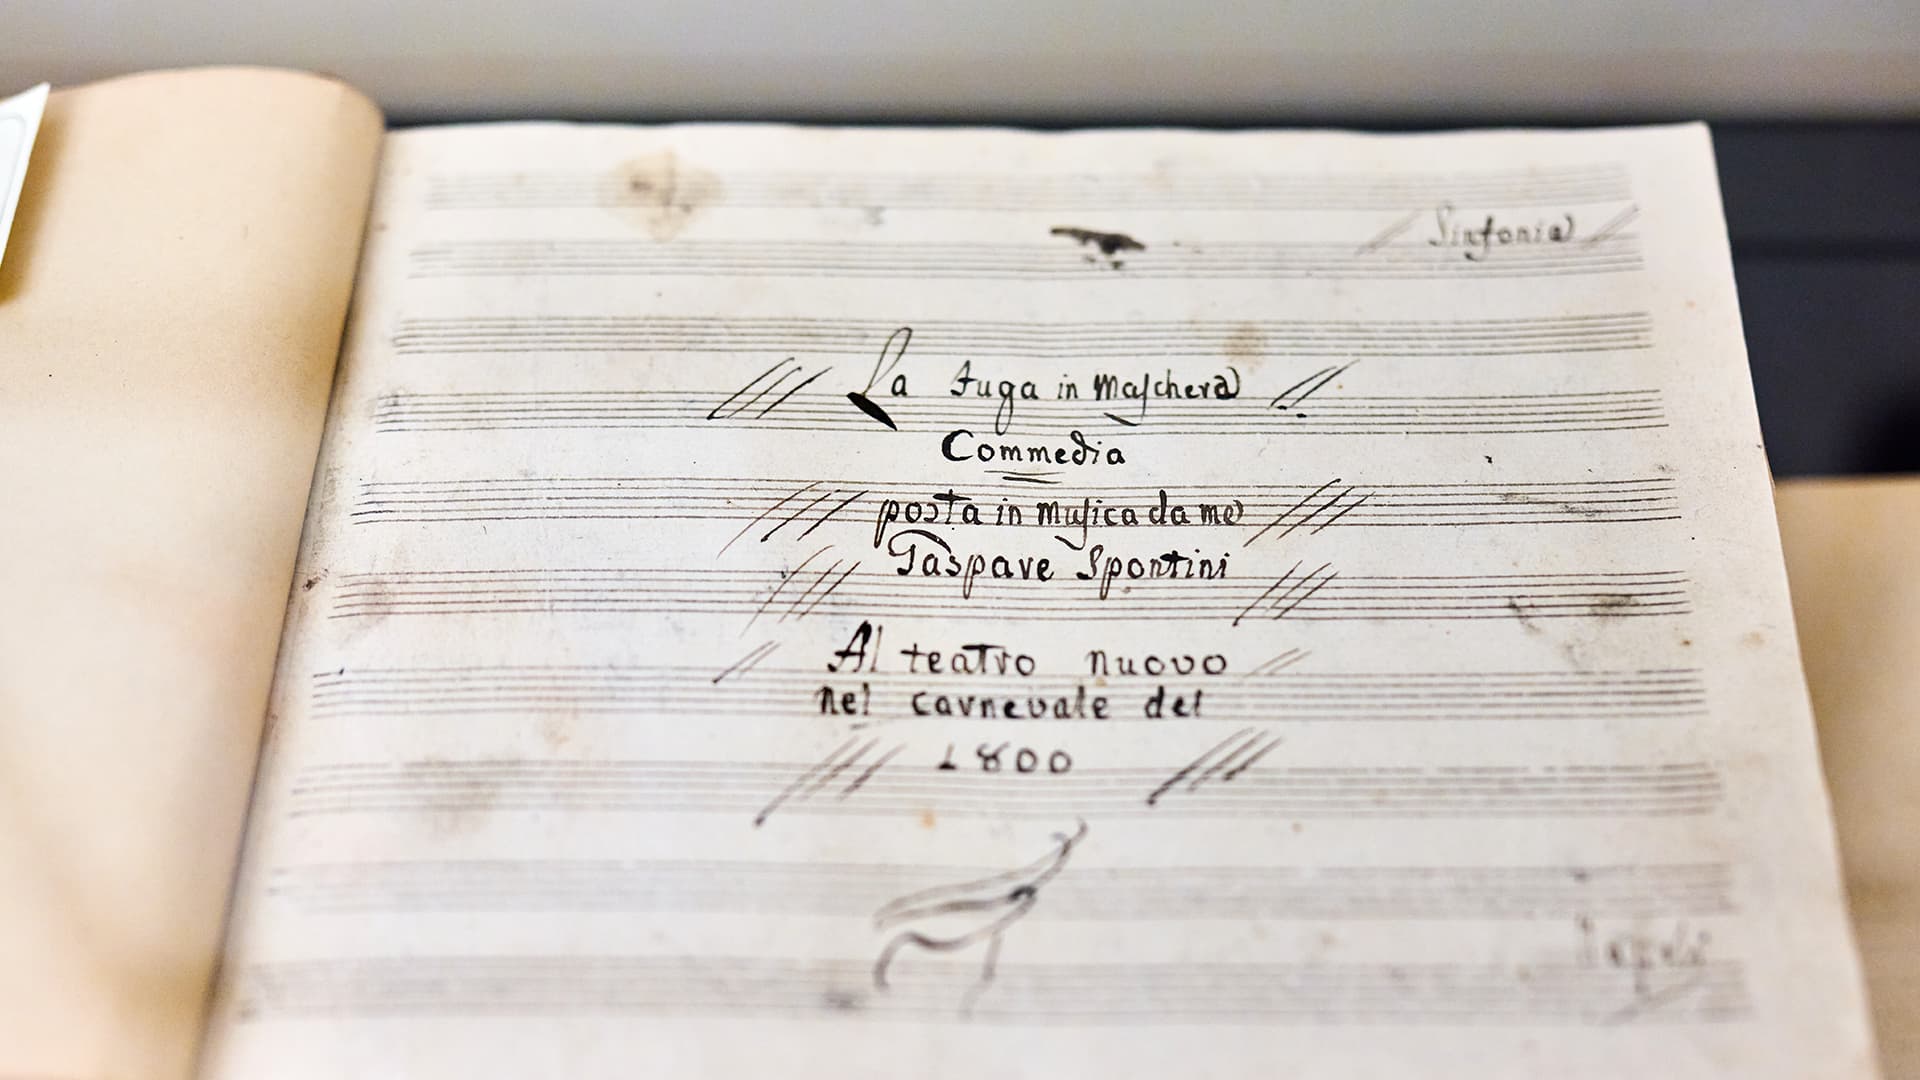 Sinfonia
La Fuga in Maschera
Commedia
posta in musica da me
Gaspare Spontini
Al teatro nuovo
nel carnevale del
1800